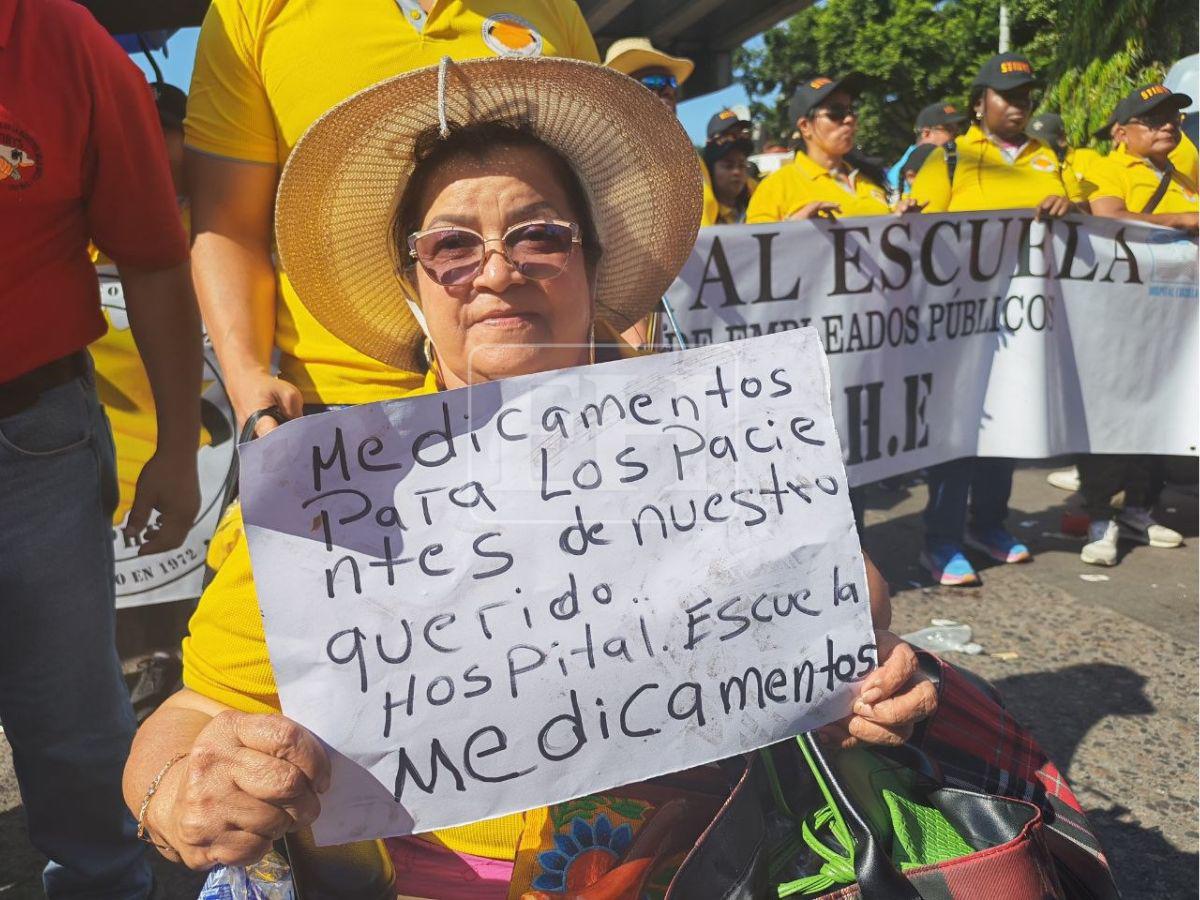 Medicamentos
Para Los Pacie
ntes de nuestro
querido..
Hospital. Escuela
Medicamentos
AL ESCUELA
DE EMPLEADOS PÚBLICOS
H.E
O EN 1972